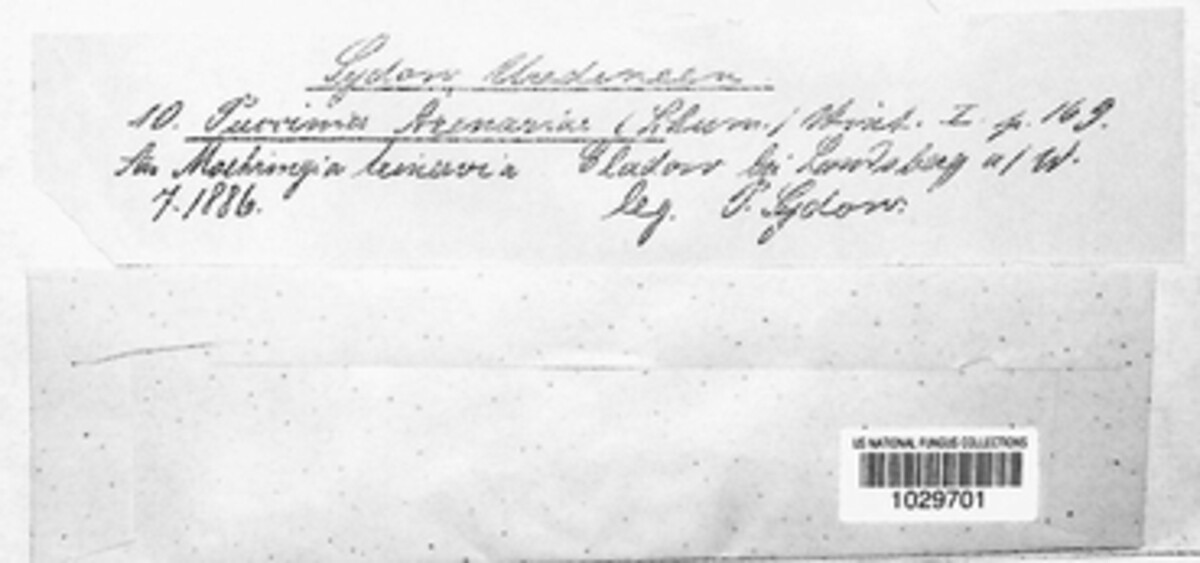 Sydow, Uredineen.
10. Puccinia Arenariae (Schum.) Wint. I. p. 169.
An Moehringia trinervia Cladow bei Landsberg a/W.
7.1886. leg. P. Sydow.
US NATIONAL FUNGUS COLLECTIONS
1029701